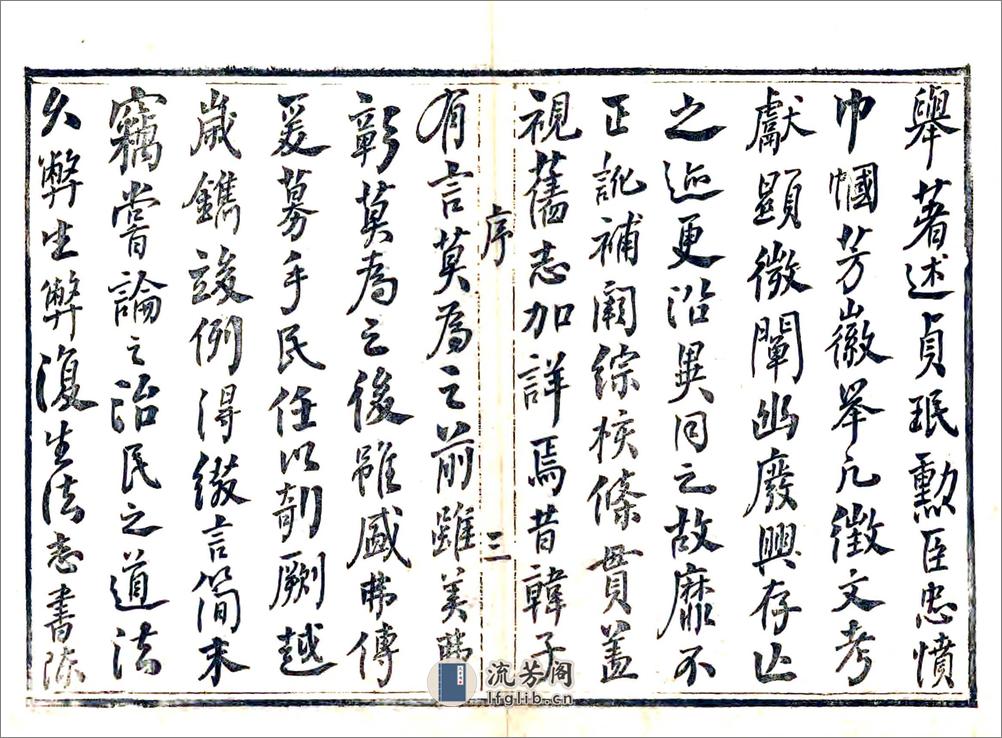 舉著述貞珉勳臣忠憤
巾幗芳徽舉凡徵文考
獻顯微闡幽廢興存亡
之迹更沿異同之故靡不
正訛補闕綜核條貫蓋
視舊志加詳焉昔韓子
序
三
有言莫為之前雖美弗
彰莫為之後雖盛弗傳
爰募手民任以剞劂越
歲鐫竣例得綴言簡末
竊嘗論之治民之道法
久弊生弊復生法志書
流芳阁
lfglib.cn